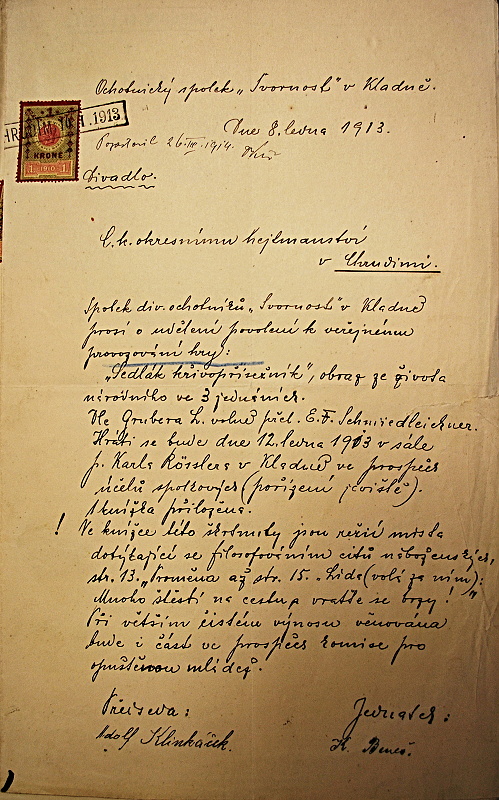 Ochotnický spolek „Svornost" v Kladně.
Dne 8. ledna 1913.
1.1913
1
KRONE
1 1910 1
26.III.1914.
Divadlo.
C. k. okresnímu hejtmanství
v Chrudimi.
Spolek div. ochotníků „Svornost" v Kladně
prosí o udělení povolení k veřejnému
provozování hry:
„Sedlák křivopřísežník", obraz ze života
národního ve 3 jednáních.
Dle Grubera L. volně přel. E. F. Schmiedleichner.
Hráti se bude dne 12. ledna 1913 v sále
p. Karla Rösslera v Kladně ve prospěch
účelů spolkových (pořízení jeviště).
1 knížka přiložena.
! Ve knížce této škrtnuty jsou režií místa
dotýkající se filosofováním citů náboženských,
str. 13. „Proměna až str. 15. Lida (volá za ním):
Mnoho štěstí na cestu a vraťte se brzy!"
Při větším čistém výnosu věnována
bude i část ve prospěch komise pro
opuštěnou mládež.
Předseda: Jednatel:
Adolf Klinkáček. K. Beneš.